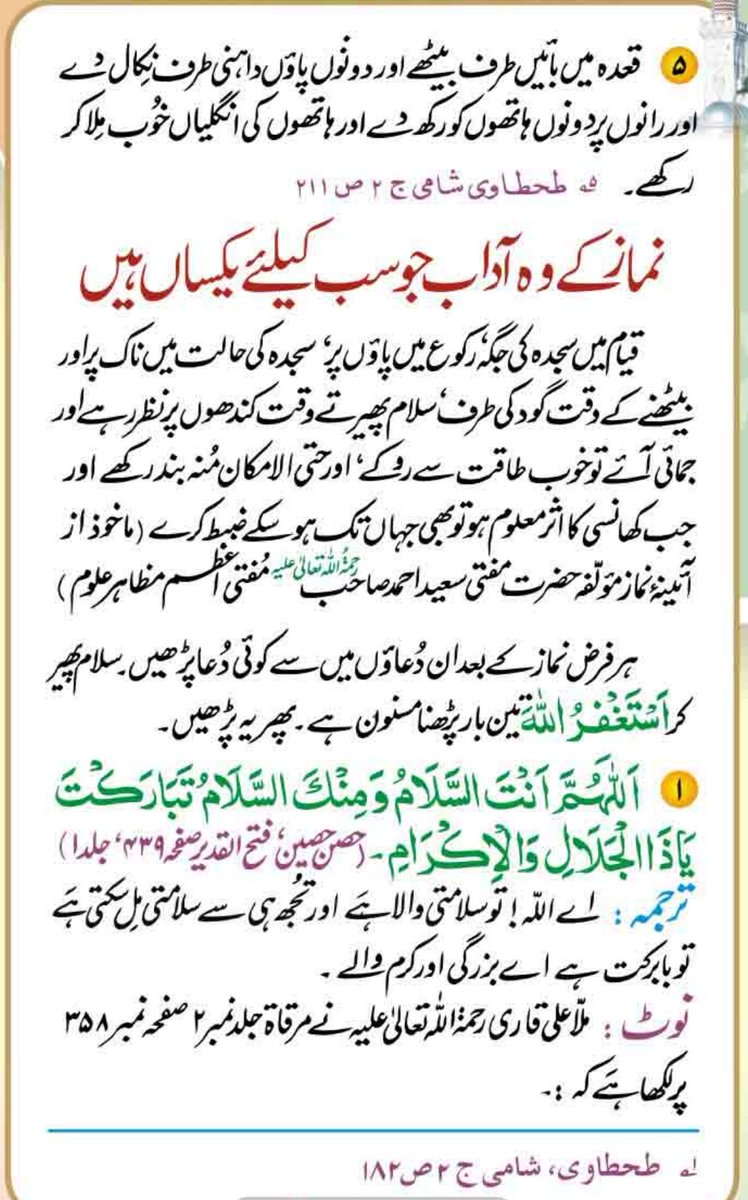 ۵ قعدہ میں بائیں طرف بیٹھے اور دونوں پاؤں داہنی طرف نکال دے
اور رانوں پر دونوں ہاتھوں کو رکھ دے اور ہاتھوں کی انگلیاں خُوب ملا کر
رکھے۔ ۵؎ طحطاوی شامی ج ۲ ص ۲۱۱
نماز کے وہ آداب جو سب کیلئے یکساں ہیں
قیام میں سجدہ کی جگہ، رکوع میں پاؤں پر، سجدہ کی حالت میں ناک پر اور
بیٹھنے کے وقت گود کی طرف، سلام پھیرتے وقت کندھوں پر نظر رہے اور
جمائی آئے تو خوب طاقت سے روکے، اور حتی الامکان مُنہ بند رکھے اور
جب کھانسی کا اثر معلوم ہو تو بھی جہاں تک ہو سکے ضبط کرے (ماخوذ از
آئینۂ نماز مؤلفہ حضرت مفتی سعید احمد صاحب رحمۃ اللہ تعالیٰ علیہ مُفتی اعظم مظاہر علوم)
ہر فرض نماز کے بعد ان دُعاؤں میں سے کوئی دُعا پڑھیں۔ سلام پھیر
کر اَسْتَغْفِرُ اللّٰهَ تین بار پڑھنا مسنون ہے۔ پھر یہ پڑھیں۔
۱ اَللّٰهُمَّ اَنْتَ السَّلَامُ وَمِنْكَ السَّلَامُ تَبَارَكْتَ
يَاذَا الْجَلَالِ وَالْاِكْرَامِ۔ (حصن حصین، فتح القدیر صفحہ ۴۳۹، جلد ۱)
ترجمہ: اے اللہ! تو سلامتی والا ہے اور تُجھ ہی سے سلامتی مِل سکتی ہے
تو بابرکت ہے اے بزرگی اور کرم والے۔
نوٹ: ملّا علی قاری رحمۃ اللہ تعالیٰ علیہ نے مرقاۃ جلد نمبر ۲ صفحہ نمبر ۳۵۸
پر لکھا ہے کہ :۔
۱؎ طحطاوی، شامی ج ۲ ص ۱۸۲